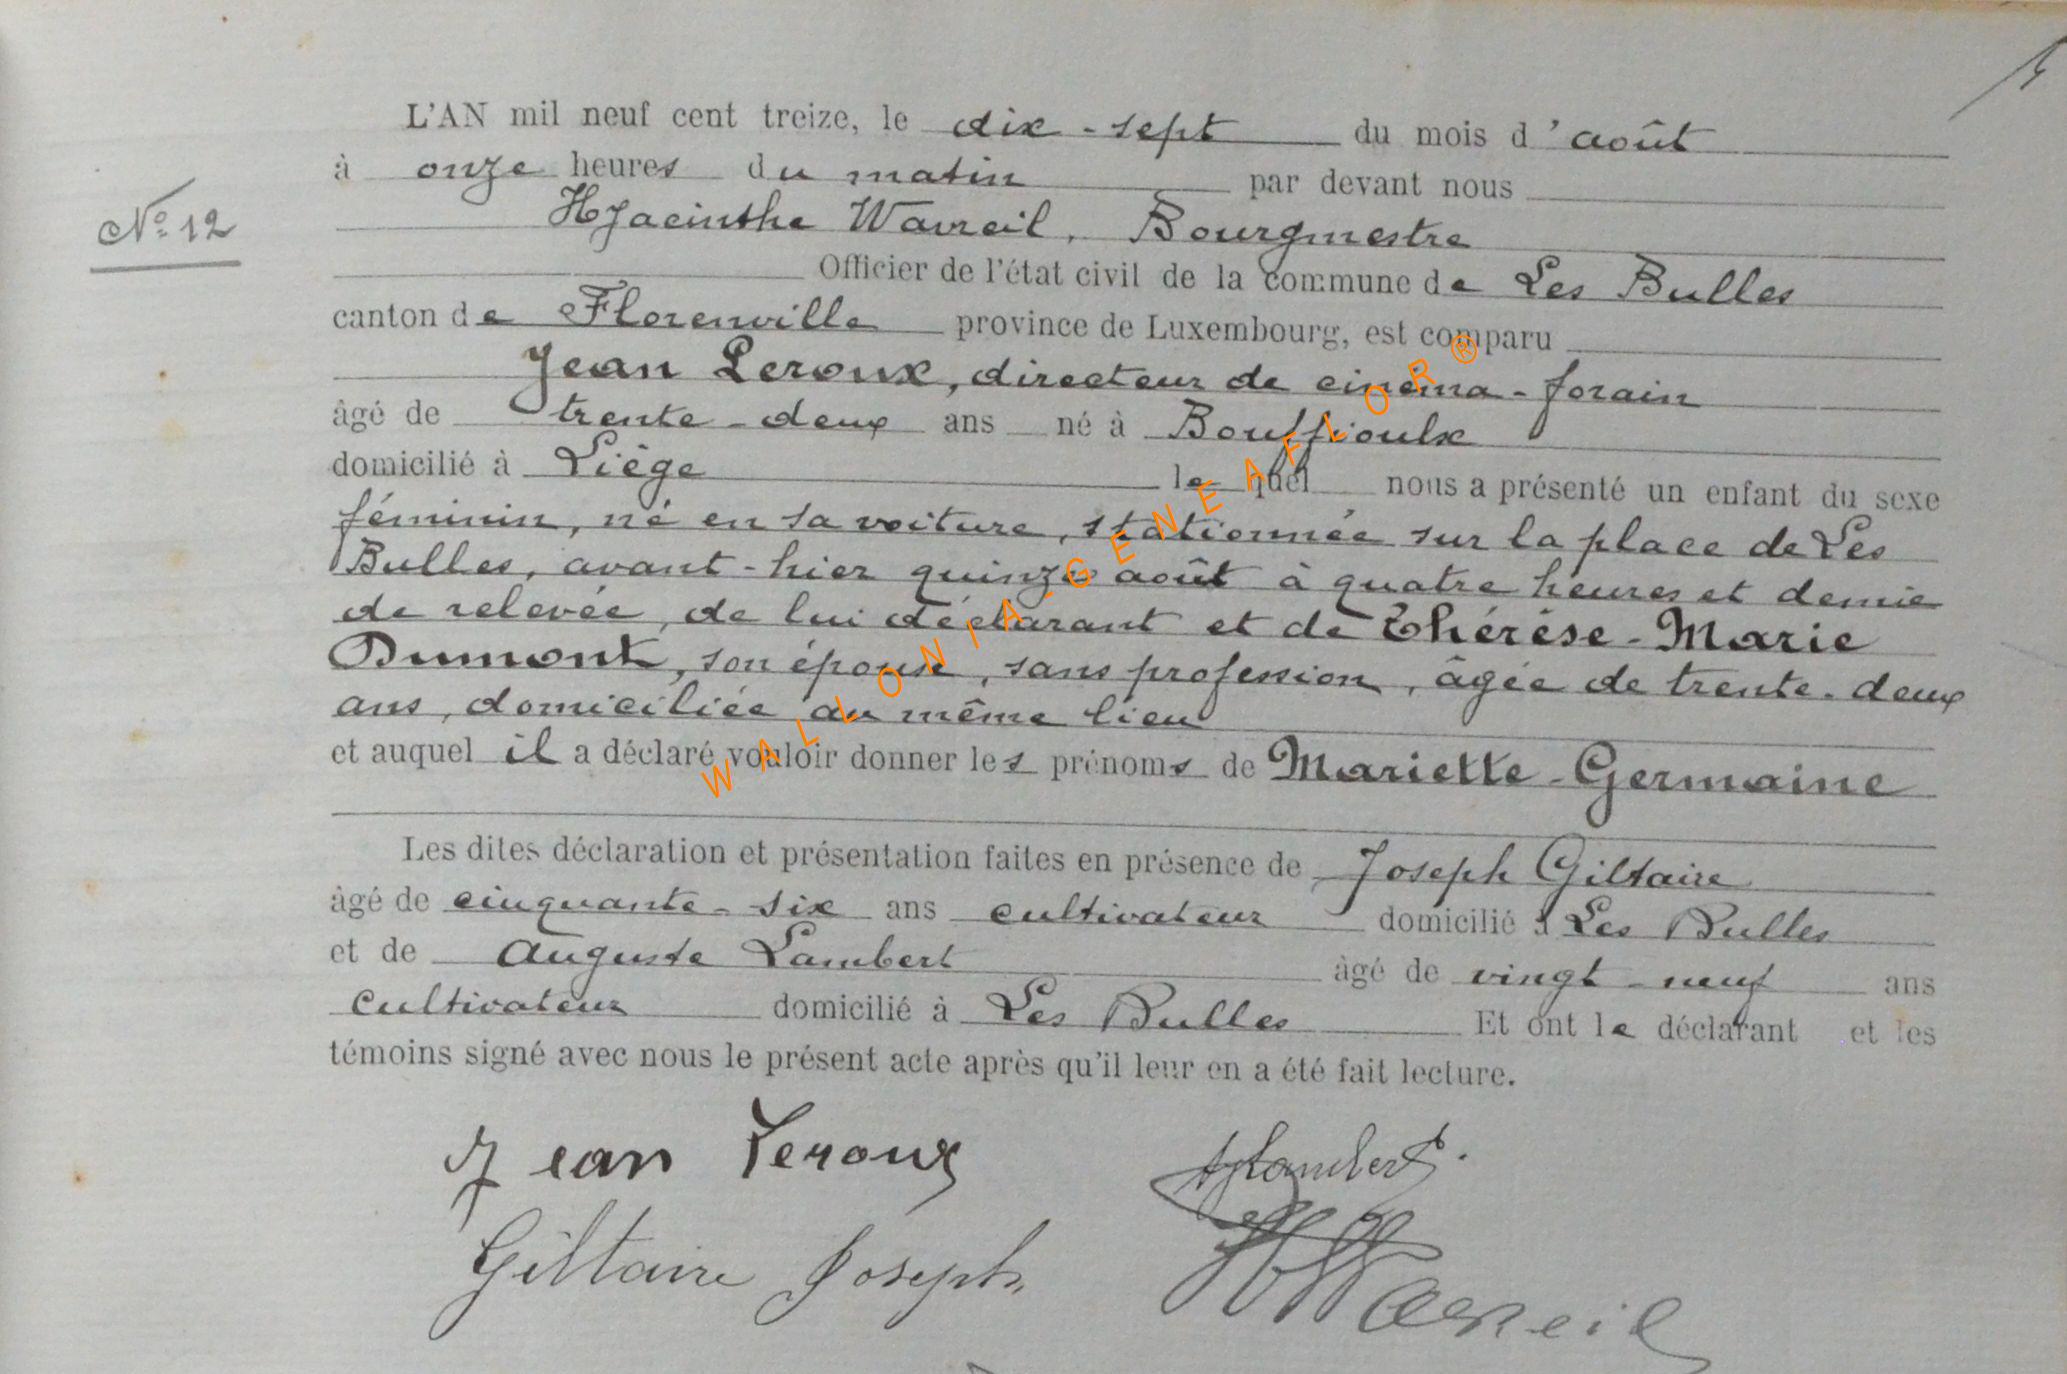 L'AN mil neuf cent treize, le dix-sept du mois d'août
à onze heures du matin par devant nous
Nº 12
Hyacinthe Wavreil, Bourgmestre
Officier de l'état civil de la commune de Les Bulles
canton de Florenville province de Luxembourg, est comparu
Jean Leroux, directeur de cinéma-forain
âgé de trente-deux ans né à Bouffioulx
domicilié à Liège lequel nous a présenté un enfant du sexe
féminin, né en sa voiture, stationnée sur la place de Les
Bulles, avant-hier quinze août à quatre heures et demie
de relevée, de lui déclarant et de Thérèse-Marie
Dumont, son épouse, sans profession, âgée de trente-deux
ans, domiciliée au même lieu
et auquel il a déclaré vouloir donner les prénoms de Mariette-Germaine
Les dites déclaration et présentation faites en présence de Joseph Giltaire
âgé de cinquante-six ans cultivateur domicilié à Les Bulles
et de Auguste Lambert âgé de vingt-neuf ans
cultivateur domicilié à Les Bulles Et ont le déclarant et les
témoins signé avec nous le présent acte après qu'il leur en a été fait lecture.
Jean Leroux
A Lambert.
Giltaire Joseph
H Wavreil
WALLONIA-GENEAFLOR®